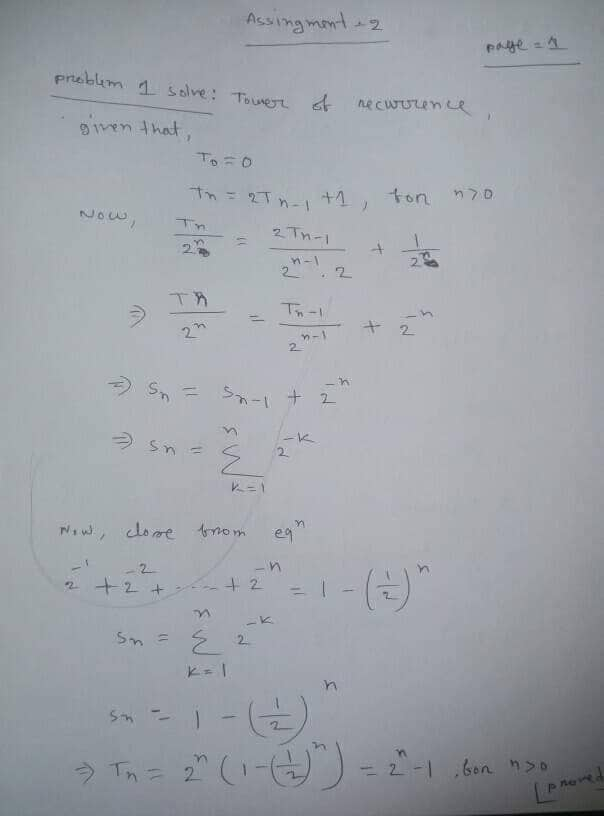 Assingment - 2
page = 1
problem 1 solve: Tower of recurrence,
given that,
T₀ = 0
Tₙ = 2Tₙ₋₁ + 1, for n>0
Now,
Tₙ/2ⁿ = 2Tₙ₋₁/(2ⁿ⁻¹.2) + 1/2ⁿ
⇒ Tₙ/2ⁿ = Tₙ₋₁/2ⁿ⁻¹ + 2⁻ⁿ
⇒ Sₙ = Sₙ₋₁ + 2⁻ⁿ
⇒ Sₙ = Σₖ₌₁ⁿ 2⁻ᵏ
Now, close from eqⁿ
2⁻¹ + 2⁻² + ..... + 2⁻ⁿ = 1 - (1/2)ⁿ
Sₙ = Σₖ₌₁ⁿ 2⁻ᵏ
Sₙ = 1 - (1/2)ⁿ
⇒ Tₙ = 2ⁿ (1-(1/2)ⁿ) = 2ⁿ-1, for n>0
[proved